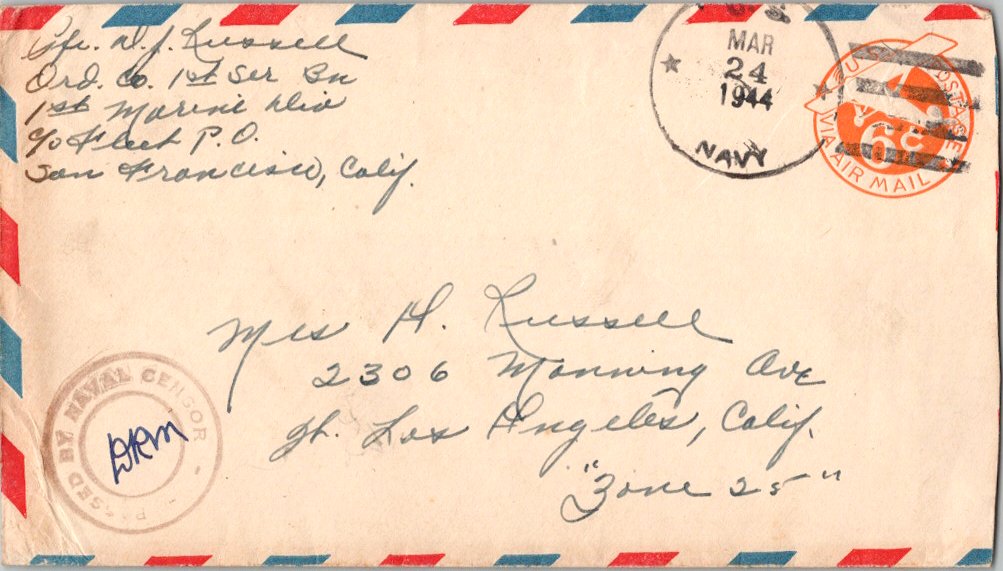 Pfc. D. J. Russell
Ord. Co. 1st Ser Bn
1st Marine Div
c/o Fleet P. O.
San Francisco, Calif.
U. S.
MAR
24
1944
NAVY
U POSTAGE
6c
VIA AIR MAIL
Mrs H. Russell
2306 Manning Ave
Los Angeles, Calif.
"Zone 25"
PASSED BY NAVAL CENSOR
DRM